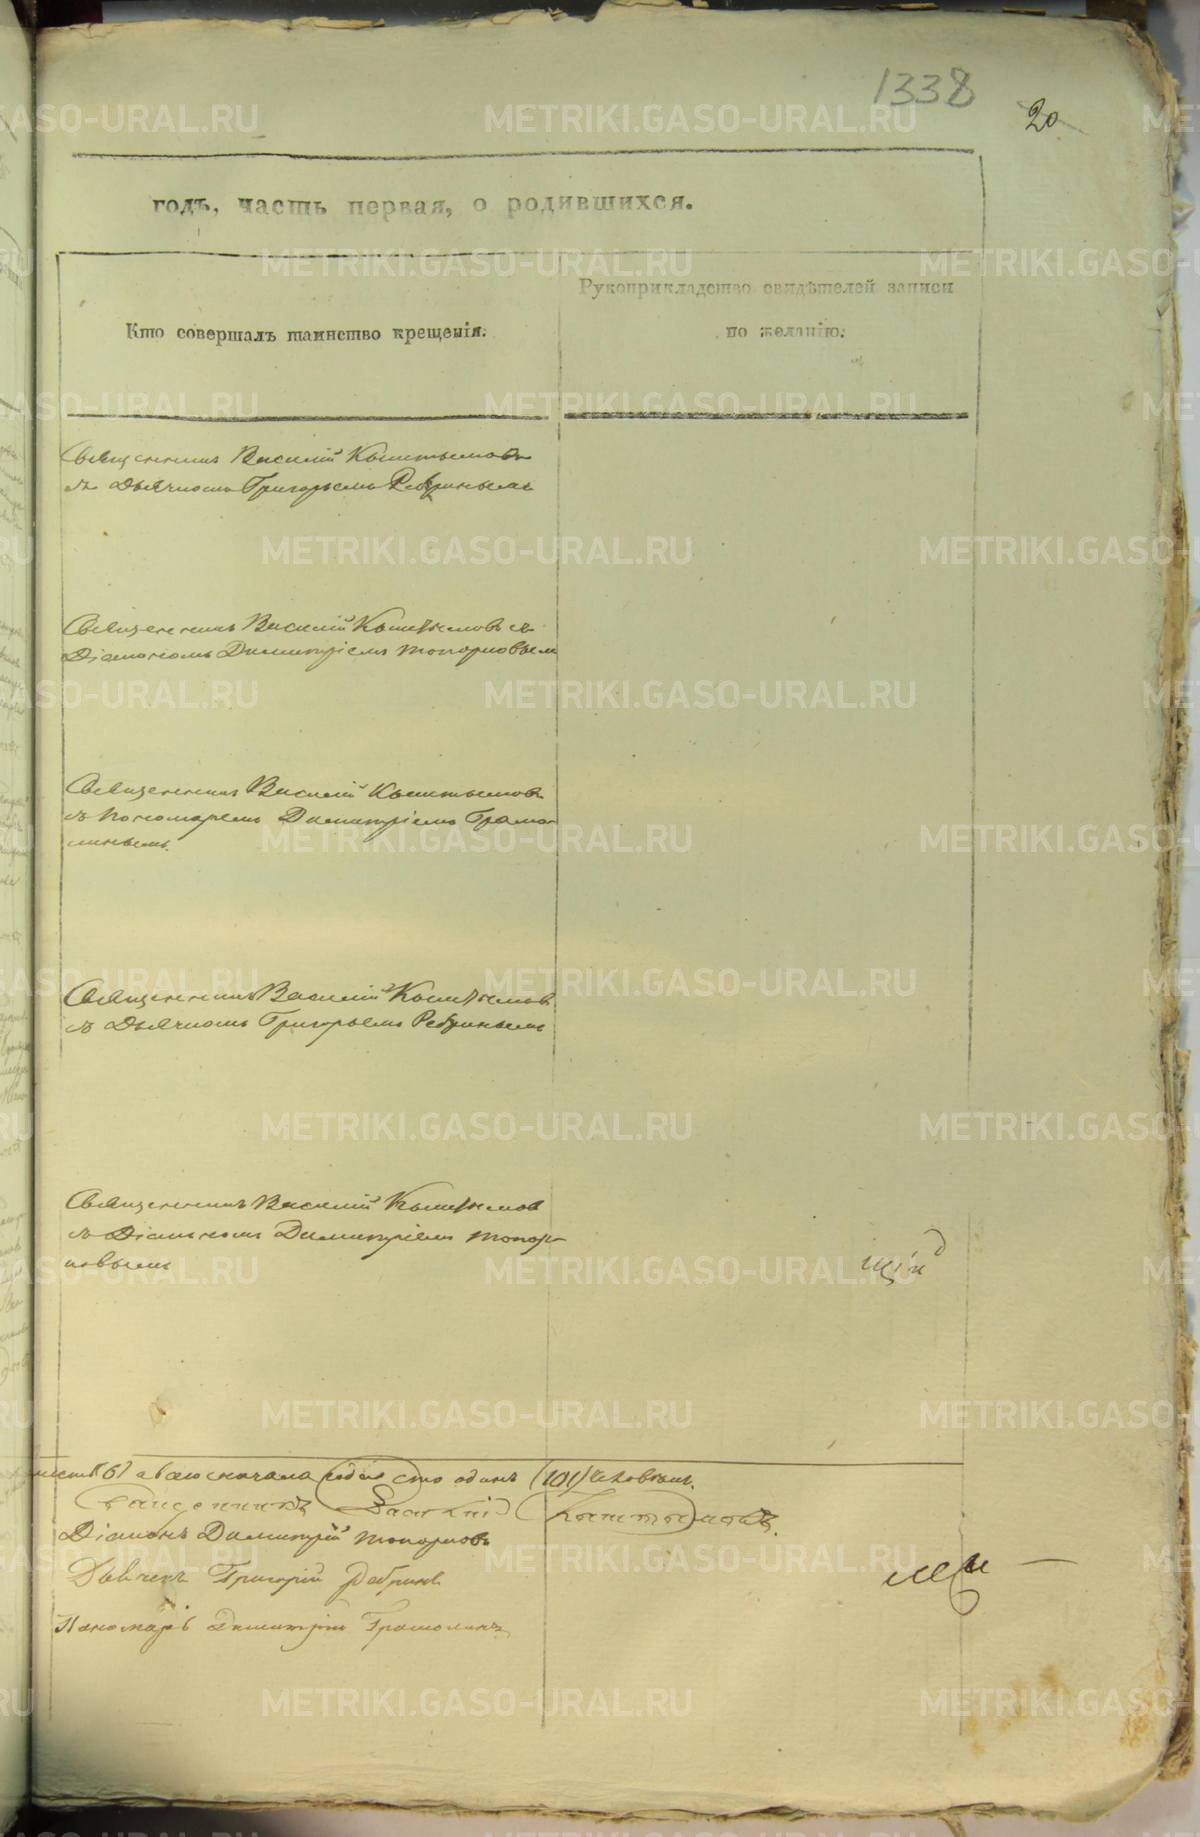 1338
20
годъ, часть первая, о родившихся.
Кто совершалъ таинство крещенія.
Рукоприкладство свидѣтелей записи
по желанію.
Священникъ Василій Кыштымовъ
съ Дьячкомъ Григорьемъ Ребринымъ
Священникъ Василій Кыштымовъ съ
Діакономъ Димитріемъ Топорковымъ
Священникъ Василій Кыштымовъ
съ Пономаремъ Димитріемъ Грамо-
линымъ.
Священникъ Василій Кыштымовъ
съ Дьячкомъ Григорьемъ Ребринымъ
Священникъ Василій Кыштымовъ
съ Діакономъ Димитріемъ Топор-
ковымъ
а всего сначала года сто одинъ (101) человѣкъ.
Священникъ Василій Кыштымовъ.
Діаконъ Димитрій Топорковъ
Дьячекъ Григорій Ребринъ
Пономарь Димитрій Грамолинъ
METRIKI.GASO-URAL.RU